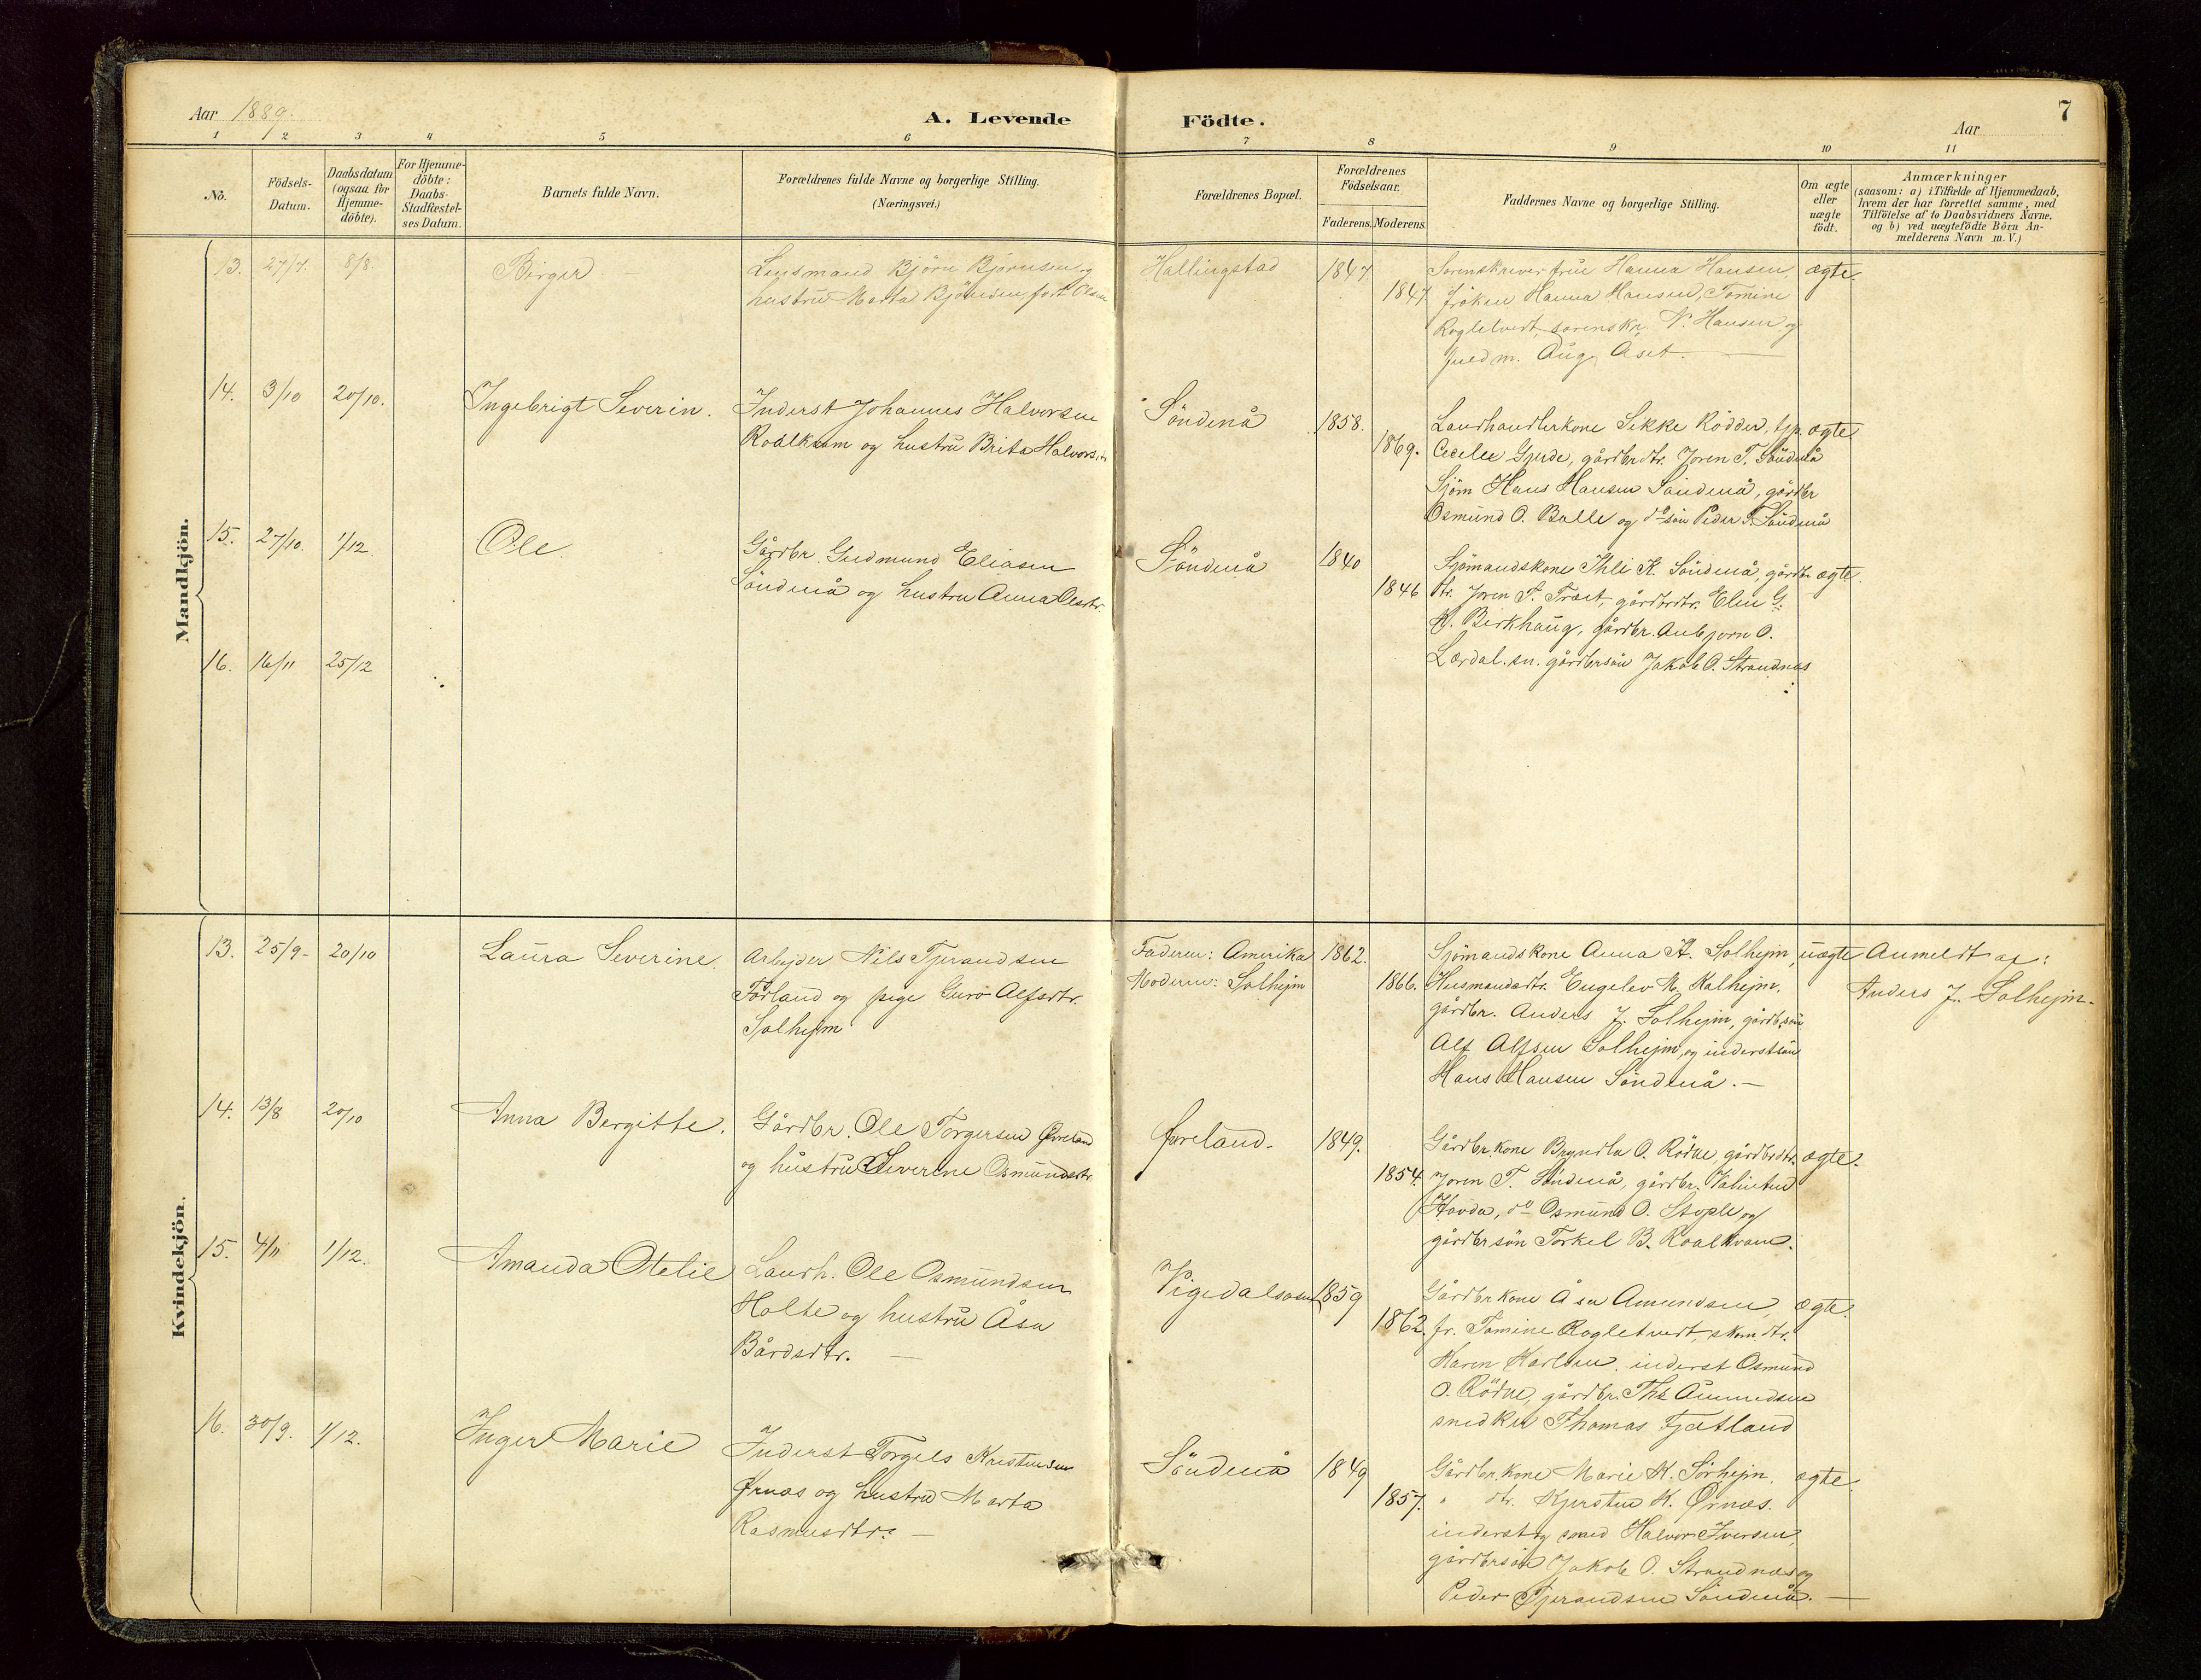 7
Aar 1889.
A. Levende Födte.
Aar
1 2 3 4 5 6 7 8 9 10 11
No.
Födsels-
Datum.
Daabsdatum
(ogsaa for
Hjemme-
döbte).
For Hjemme-
döbte:
Daabs-
Stadfæstel-
ses Datum.
Barnets fulde Navn.
Forældrenes fulde Navne og borgerlige Stilling.
(Næringsvei.)
Forældrenes Bopæl.
Forældrenes
Födselsaar.
Faderens. Moderens.
Faddernes Navne og borgerlige Stilling.
Om ægte
eller
uægte
födt.
Anmærkninger
(saasom: a) i Tilfælde af Hjemmedaab,
hvem der har forrettet samme, med
Tilföielse af to Daabsvidners Navne.
og b) ved uægtefödte Börn An-
melderens Navn m. V.)
Mandkjön.
13. 27/7. 8/8. Birger
Lensmand Björn Björnsen og
hustru Marta Björnsen født Olsen
Hallingstad
1847
1847
Sorenskriver frue Hanna Hansen,
fröken Hanna Hansen, Tomine
Rogletvedt, sorenskr. N. Hansen og
fuldm. Aug. Aset.
ægte.
14. 3/10 20/10. Ingebrigt Severin.
Inderst Johannes Halvorsen
Roalkvam og hustru Brita Halvors
Söndenå
1858.
1869.
Landhandlerkone Sikke Rödder,
Cecelie Gjerde, gårdbrdtr. Joren T. Söndenå
Sjöm Hans Hansen Söndenå, gårdbr
Osmund O. Balle og do sön Peder T. Söndenå
ægte
15. 27/10. 1/12. Ole.
Gårdbr. Gudmund Eliasen
Söndenå og hustru Anna Olsdtr.
Söndenå
1840
1846
Sjömandskone Thli K. Söndenå, gårdbr
dtr. Joren T. Træet, gårdbrdtr. Elen G.
K. Birkhaug, gårdbr. Anbjorn O.
Lærdal. sn. gårdbrsön Jakob O. Strandnæs
ægte.
16. 16/11 25/12
Kvindekjön.
13. 25/9- 20/10 Laura Severine.
Arbejder Nils Tjerandsen
Førland og pige Guro Alfsdtr.
Solhejm
Faderen: Amerika
Moderen: Solhejm
1862.
1866.
Sjömandskone Anna A. Solhejm,
Husmandsdtr. Engelev N. Kalhejm.
gårdbr. Anders J. Solhejm, gårdbrsön
Alf Alfsen Solhejm, og inderstsön
Hans Hansen Söndenå. —
uægte
Anmeldt af:
Anders J. Solhejm.
14. 13/8 20/10 Anna Bergitte.
Gårdbr. Ole Torgersen Øvreland
og hustru Severine Osmundsdtr.
Øvreland.
1849.
1854.
Gårdbrkone Bryndla O. Rödne, gårdbrdtr.
Joren T. Söndenå, gårdbr. Valentin
Hovda, do Osmund O. Stople og
gårdbrsön Torkel B. Roalkvam.
ægte.
15. 4/11 1/12. Amanda Otelie
Landh. Ole Osmundsen
Holte og hustru Åsa
Bårdsdtr. —
Vigedalsosen
1859
1862.
Gårdbrkone Åsa Amundsen,
fr. Tomine Rogletvedt, skom.dtr.
Karen Karlsen. inderst Osmund
O. Rödne, gårdbr. Ths Åmundsen
snedker Thomas Fjetland
ægte.
16. 30/9. 1/12. Inger Marie
Inderst Torgels Kristensen
Ørnæs og hustru Marta
Rasmusdtr. —
Söndenå
1849
1857.
Gårdbrkone Marie K. Sörhejm.
" dtr. Kjersten K. Ørnæs.
inderst og smed Halvor Iversen,
gårdbrsön Jakob O. Strandnæs og
Peder Tjerandsen Söndenå. —
ægte.